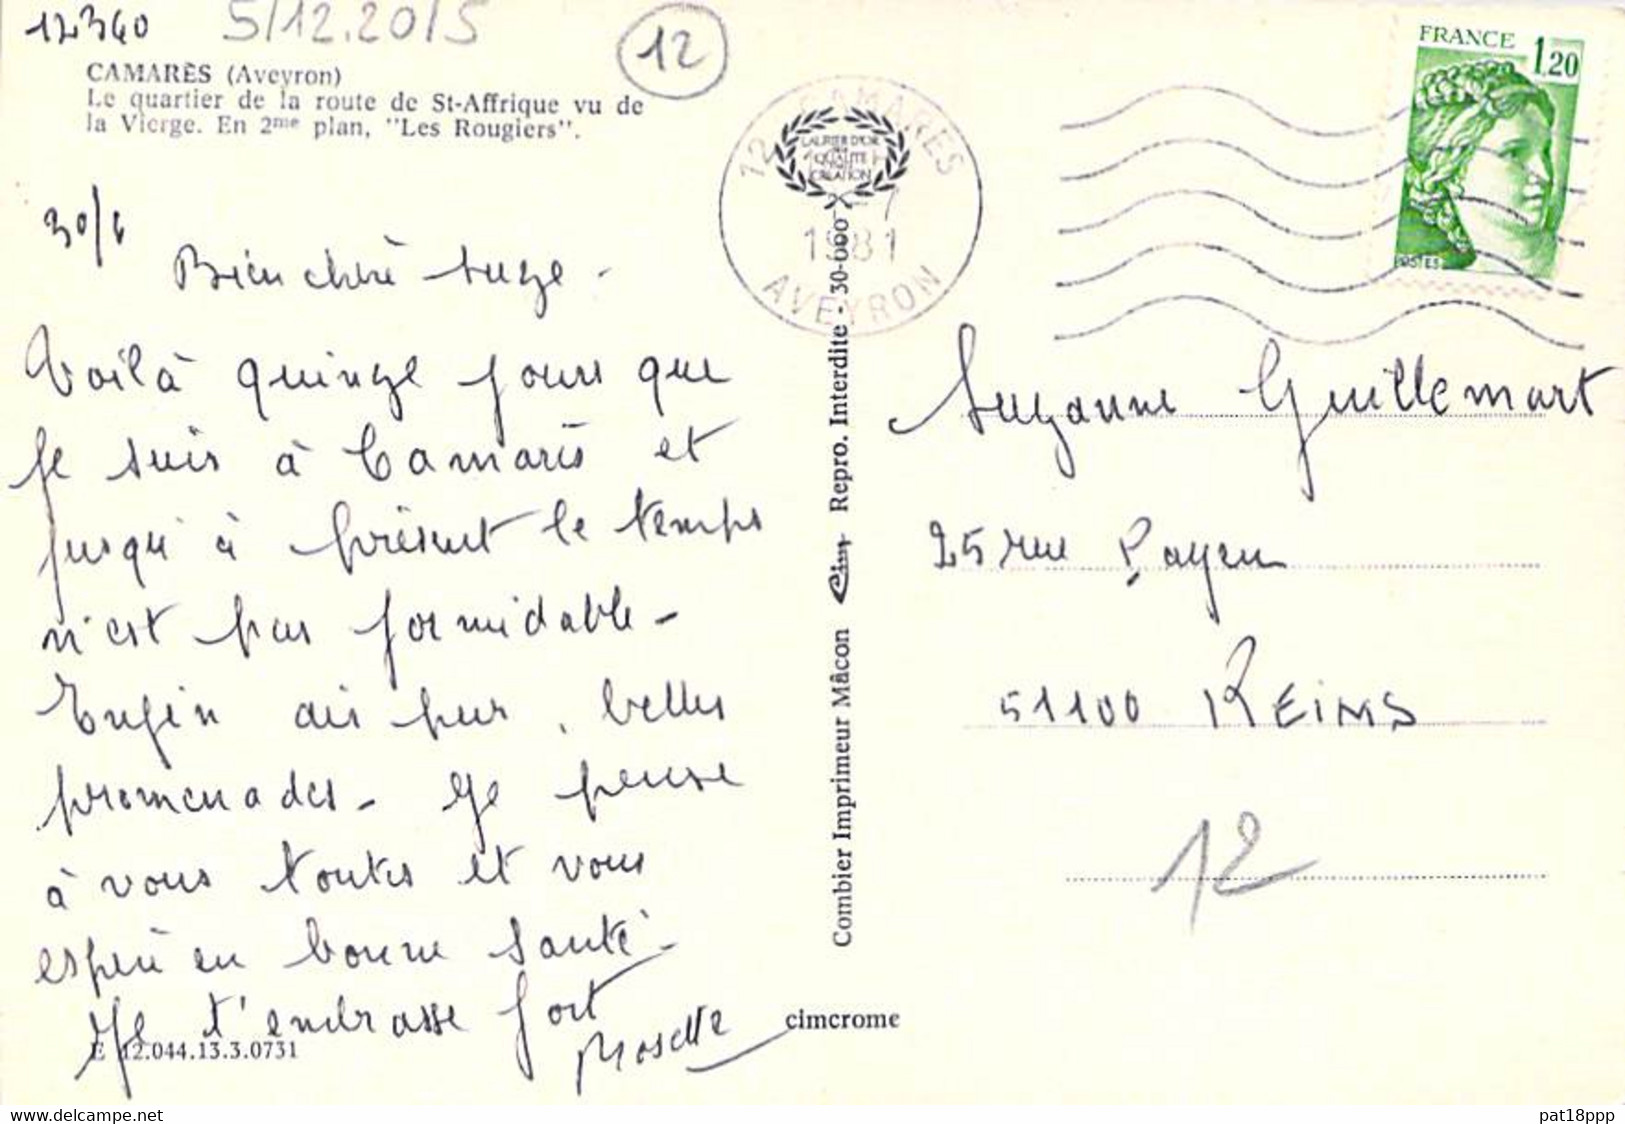 12360 5/12.2015 12
CAMARÈS (Aveyron)
Le quartier de la route de St-Affrique vu de
la Vierge. En 2me plan, "Les Rougiers".
30/6
Bien chère Suze -
Voilà quinze jours que
je suis à Camarès et
jusqu'à présent le temps
n'est pas formidable -
Enfin air pur, belles
promenades - Je pense
à vous toutes et vous
espère en bonne santé -
Je t'embrasse fort
E 12.044.13.3.0731
12 CAMARES
LAURIER D'OR
QUALITÉ
CRÉATION
-7
1981
AVEYRON
Combier Imprimeur Mâcon Cim Repro. Interdite - 30-000
cimcrome
FRANCE 1,20
POSTES
Suzanne Guillemart
25 rue Payen
51100 REIMS
12
www.delcampe.net
pat18ppp